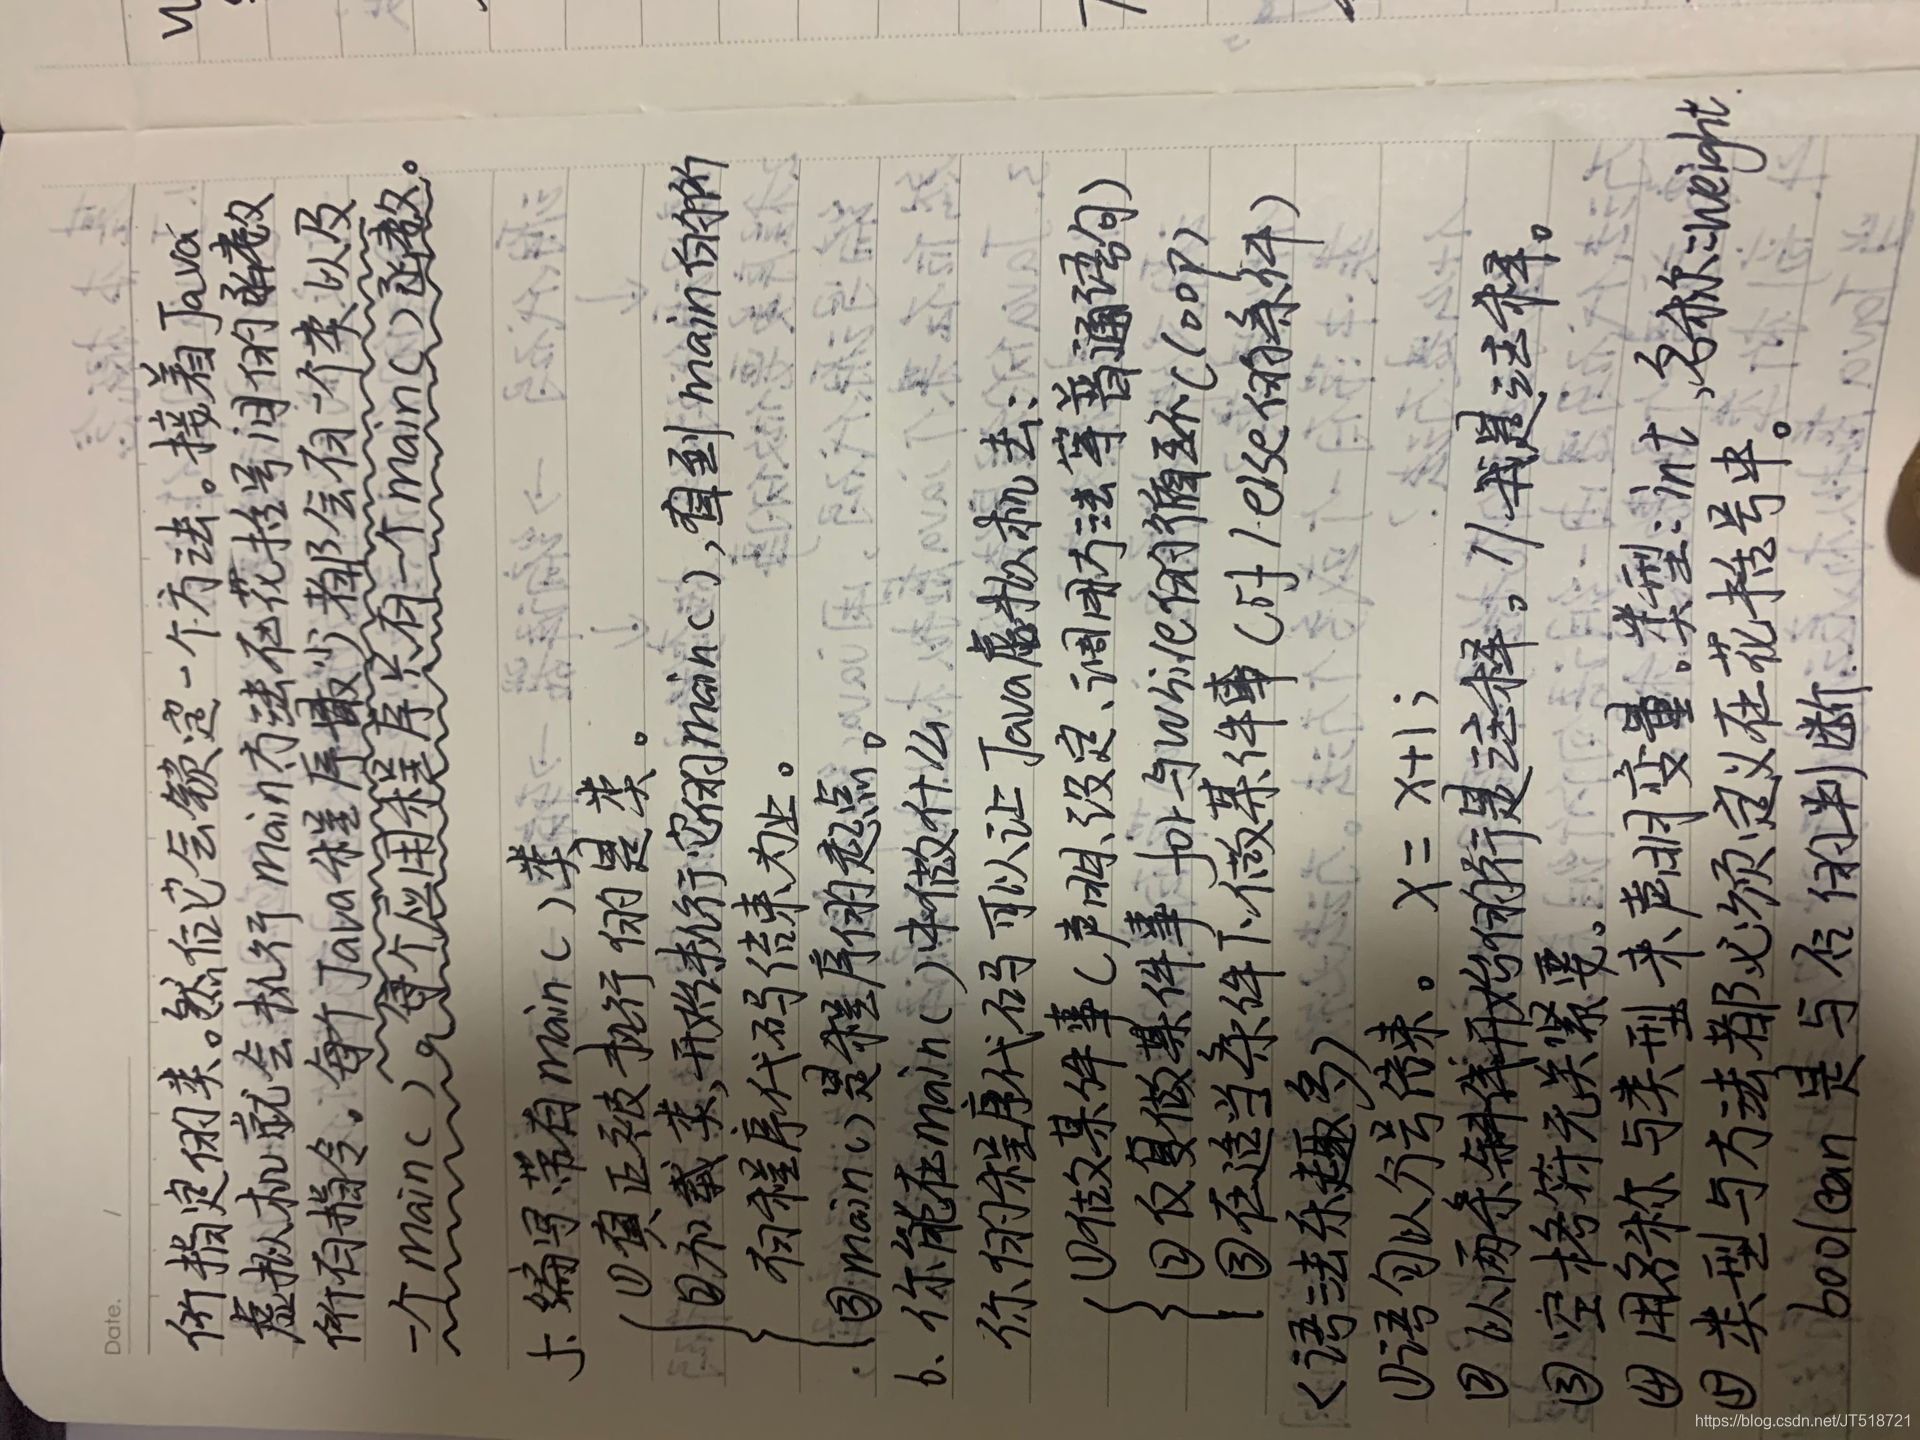 Date. /
所指定的类。然后它会锁定一个方法。接着Java
虚拟机就会执行main方法在花括号间的函数
所有指令。每个Java程序最少都会有一个类以及
一个main()。每个应用程序只有一个main()函数。
5、编写带有main()类
①真正被执行的是类。
②加载类,开始执行它的main(),直到main的所
有程序代码结束为止。
③main()是程序的起点。
6、你能在main()中做什么
你的程序代码可以让Java虚拟机去:
①做某件事(声明、设定、调用方法等普通语句)
②反复做某件事 for与while的循环(loop)
③在适当条件下做某件事(if/else的条件)
<语法乐趣多>
①语句以分号结束。 x = x+1;
②以两条斜线开始的行是注释。//我是注释。
③空格符无关紧要。
④用名称与类型来声明变量。类型:int,名称:weight.
⑤类型与方法都必须定义在花括号中。
boolean 是与否的判断
https://blog.csdn.net/JT518721